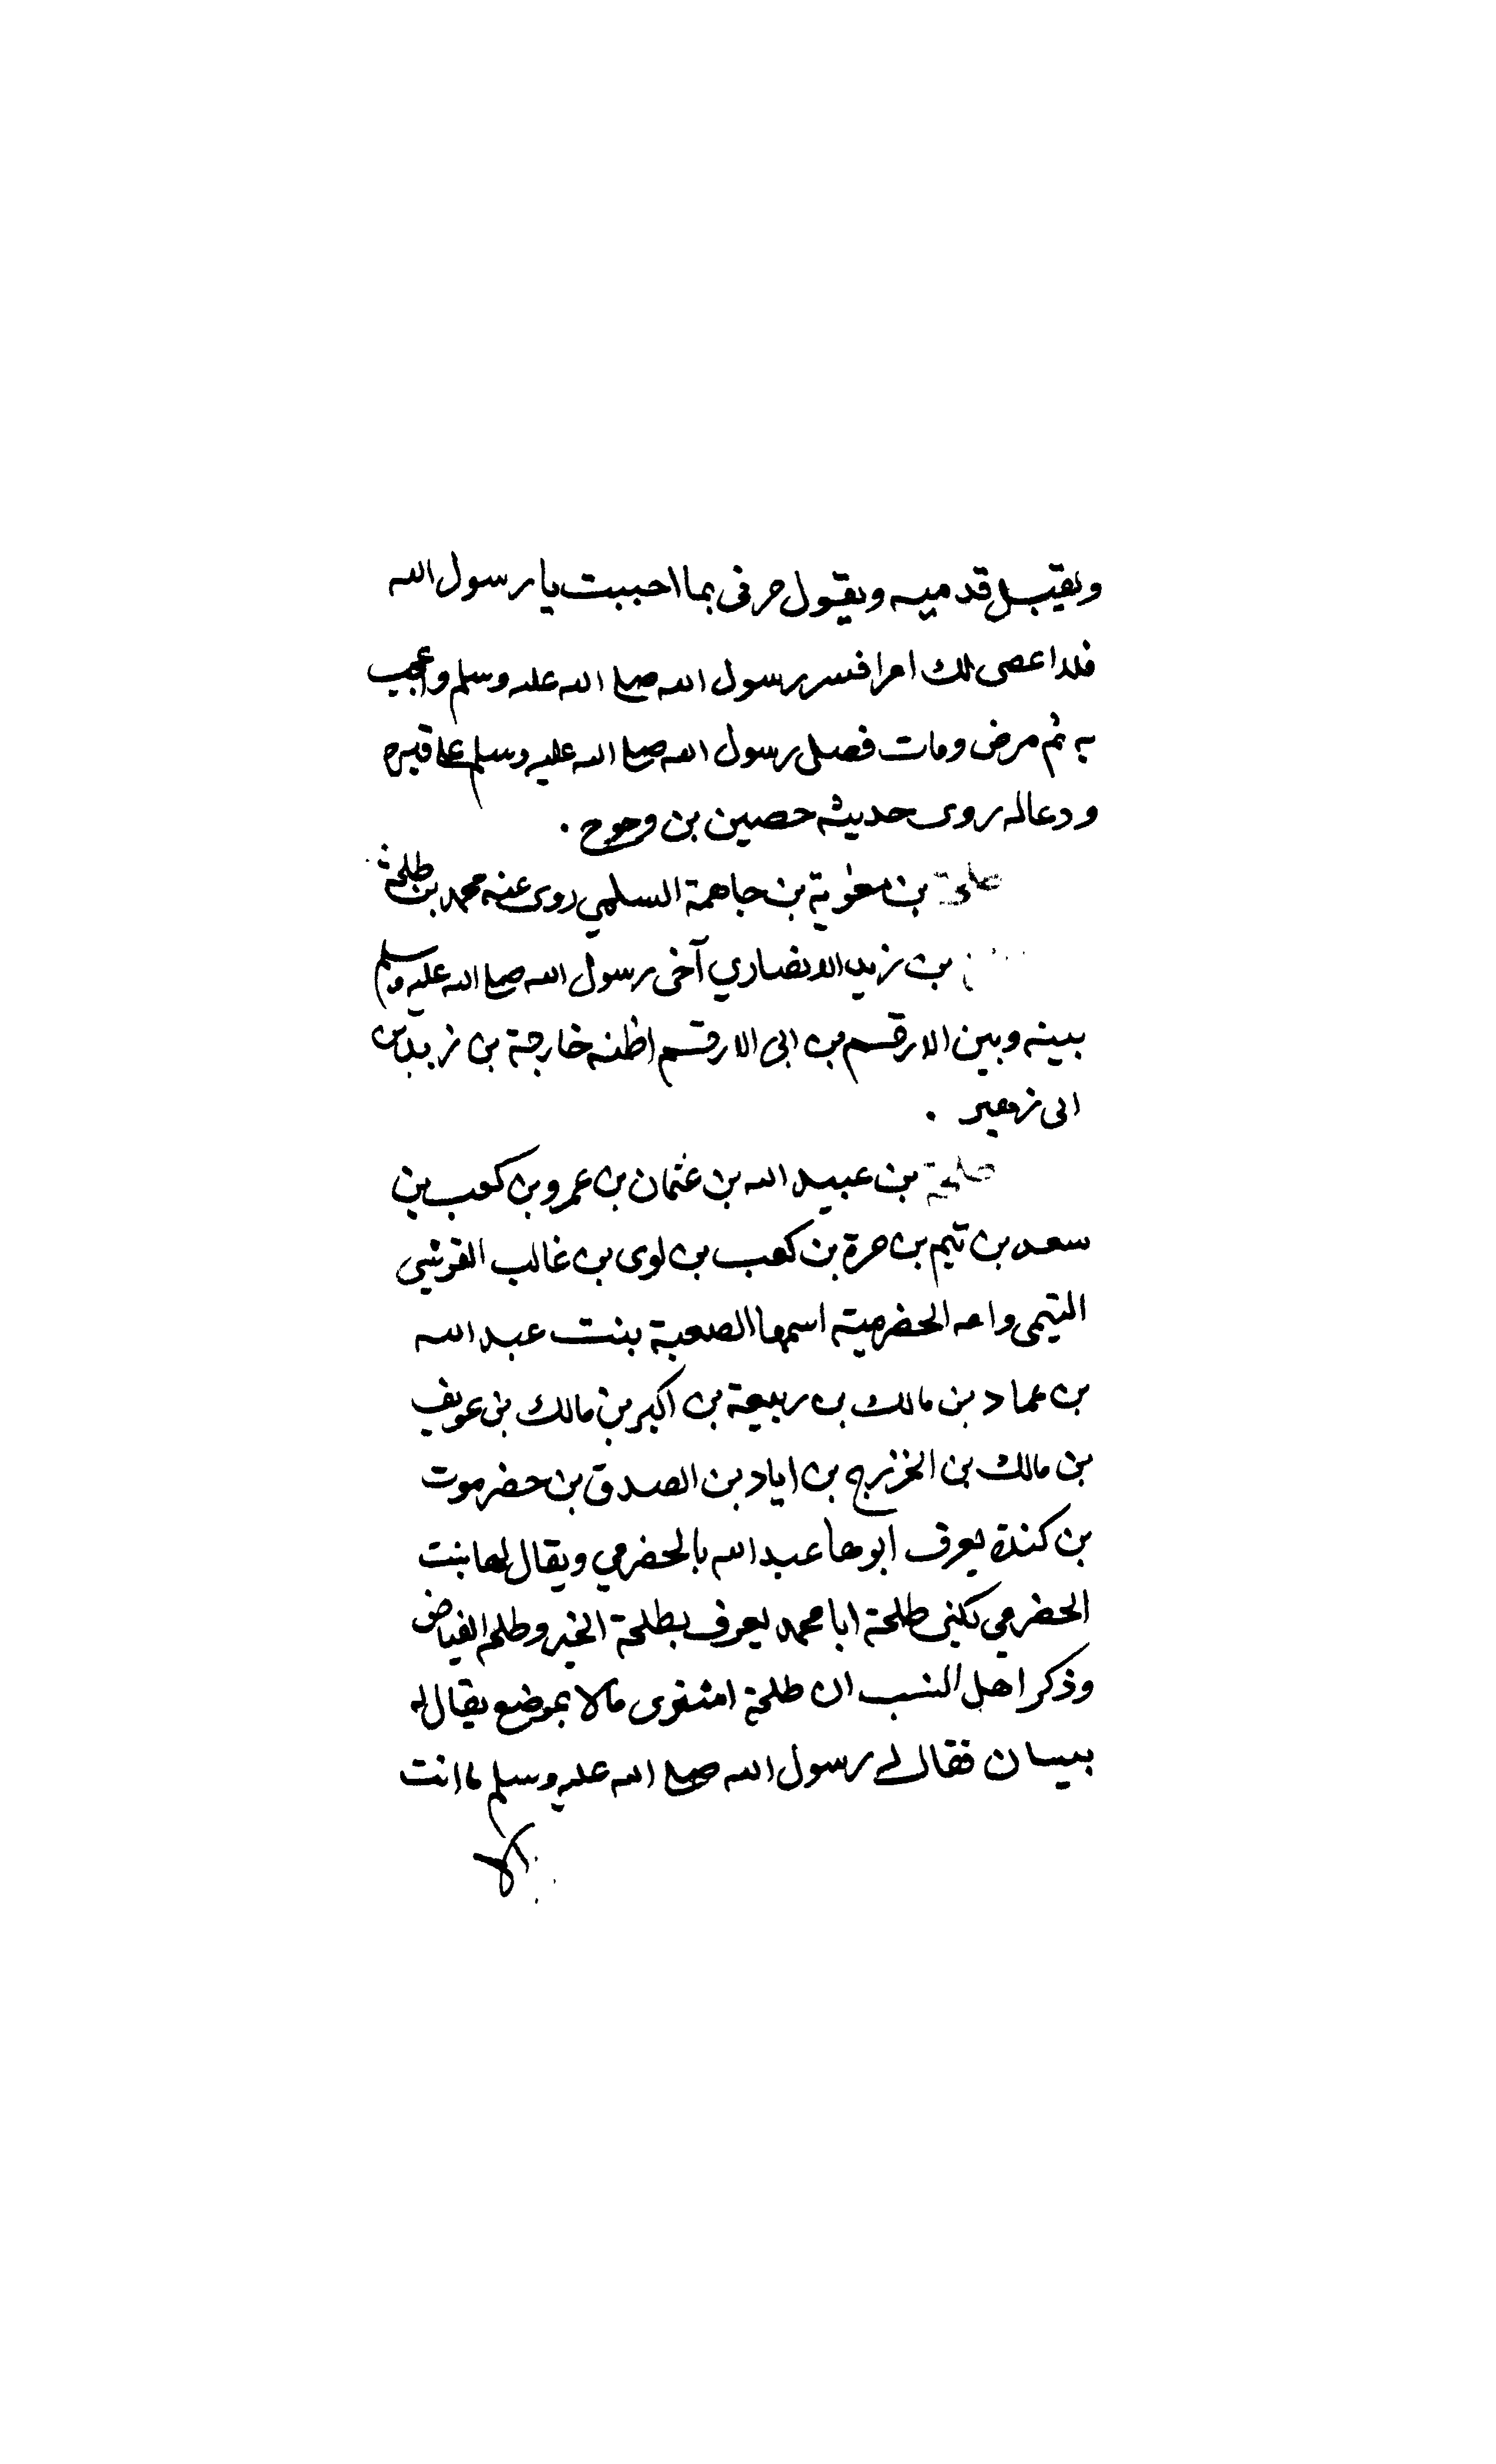 ويقبل قدميه ويقول مرنى بما احببت يا رسول الله
فلا اعصى لك امرا فسر رسول الله صلى الله عليه وسلم واعجب
به ثم مرض ومات فصلى رسول الله صلى الله عليه وسلم على قبره
ودعا له روى حديثه حصين بن وحوح .
طلحة بن معوية بن جاهمة السلمي روى عنه محمد بن طلحة
بن زيد الانصاري آخى رسول الله صلى الله عليه وسلم
بينه وبين الارقم بن ابى الارقم اظنه خارجة بن زيد بن
ابى زهير .
طلحة بن عبيد الله بن عثمان بن عمرو بن كعب بن
سعد بن تيم بن مرة بن كعب بن لوى بن غالب القرشي
التيمى وامه الحضرمية اسمها الصعبة بنت عبد الله
بن عماد بن مالك بن ربيعة بن اكبر بن مالك بن عويف
بن مالك بن الخزرج بن اياد بن الصدق بن حضرموت
بن كندة يعرف ابوها عبد الله بالحضرمي ويقال لها بنت
الحضرمي يكنى طلحة ابا محمد يعرف بطلحة الخير وطلحة الفياض
وذكر اهل النسب ان طلحة اشترى مالا بموضع يقال له
بيسان فقال له رسول الله صلى الله عليه وسلم ما انت
الا